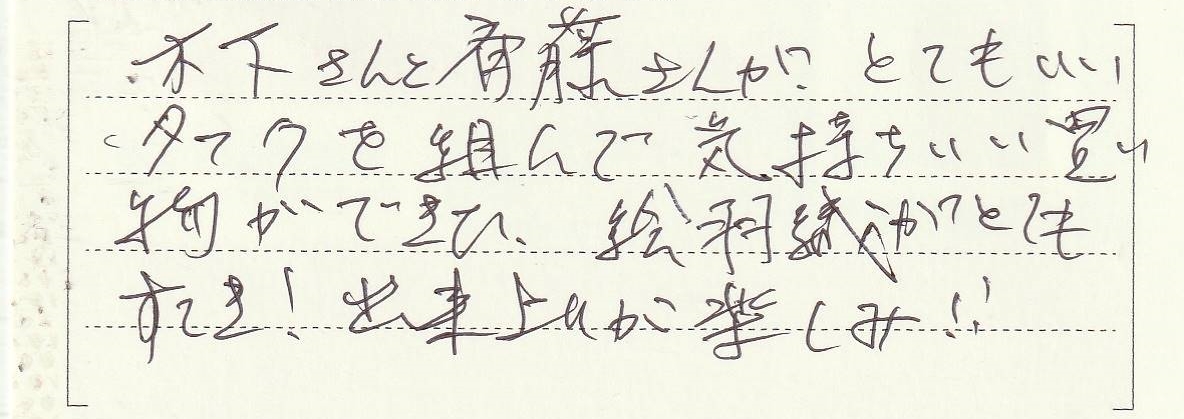 木下さんと斉藤さんが とてもいい
タックを組んで気持ちいい買い
物ができた、絵羽織がとても
すてき!出来上りが楽しみ!!